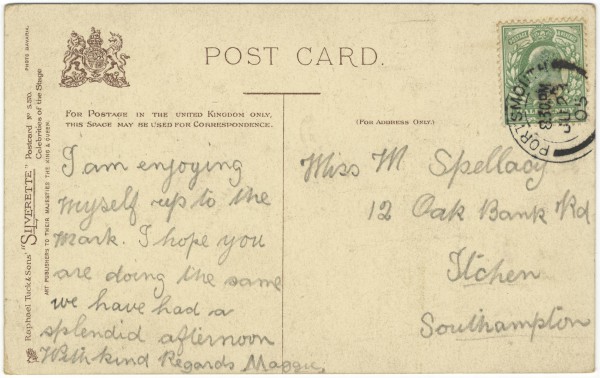 POST CARD.
FOR POSTAGE IN THE UNITED KINGDOM ONLY,
THIS SPACE MAY BE USED FOR CORRESPONDENCE.
(FOR ADDRESS ONLY.)
I am enjoying
myself up to the
mark. I hope you
are doing the same
we have had a
splendid afternoon
With kind Regards Maggie.
Miss M Spellacy
12 Oak Bank Rd
Itchen
Southampton
PORTSMOUTH
8.30PM
05
Raphael Tuck & Sons' "SILVERETTE" Postcard Nº 5-370.
Celebrities of the Stage
ART PUBLISHERS TO THEIR MAJESTIES THE KING & QUEEN.